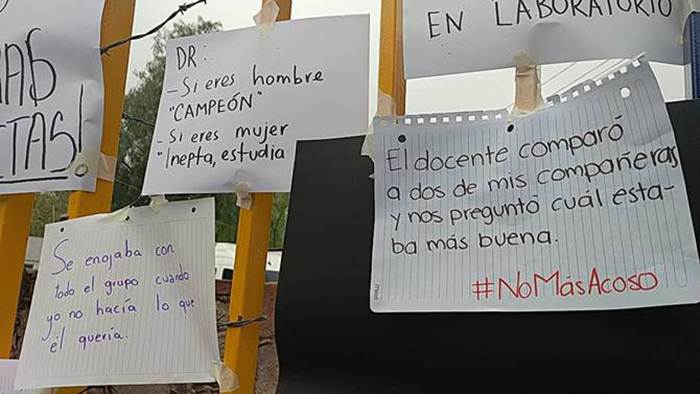 EN LABORATORIO
DR:
- Si eres hombre
"CAMPEÓN"
- Si eres mujer
"Inepta, estudia
El docente comparó
a dos de mis compañeras
y nos preguntó cuál esta-
ba más buena.
#NoMásAcoso
Se enojaba con
todo el grupo cuando
yo no hacía lo que
él quería.